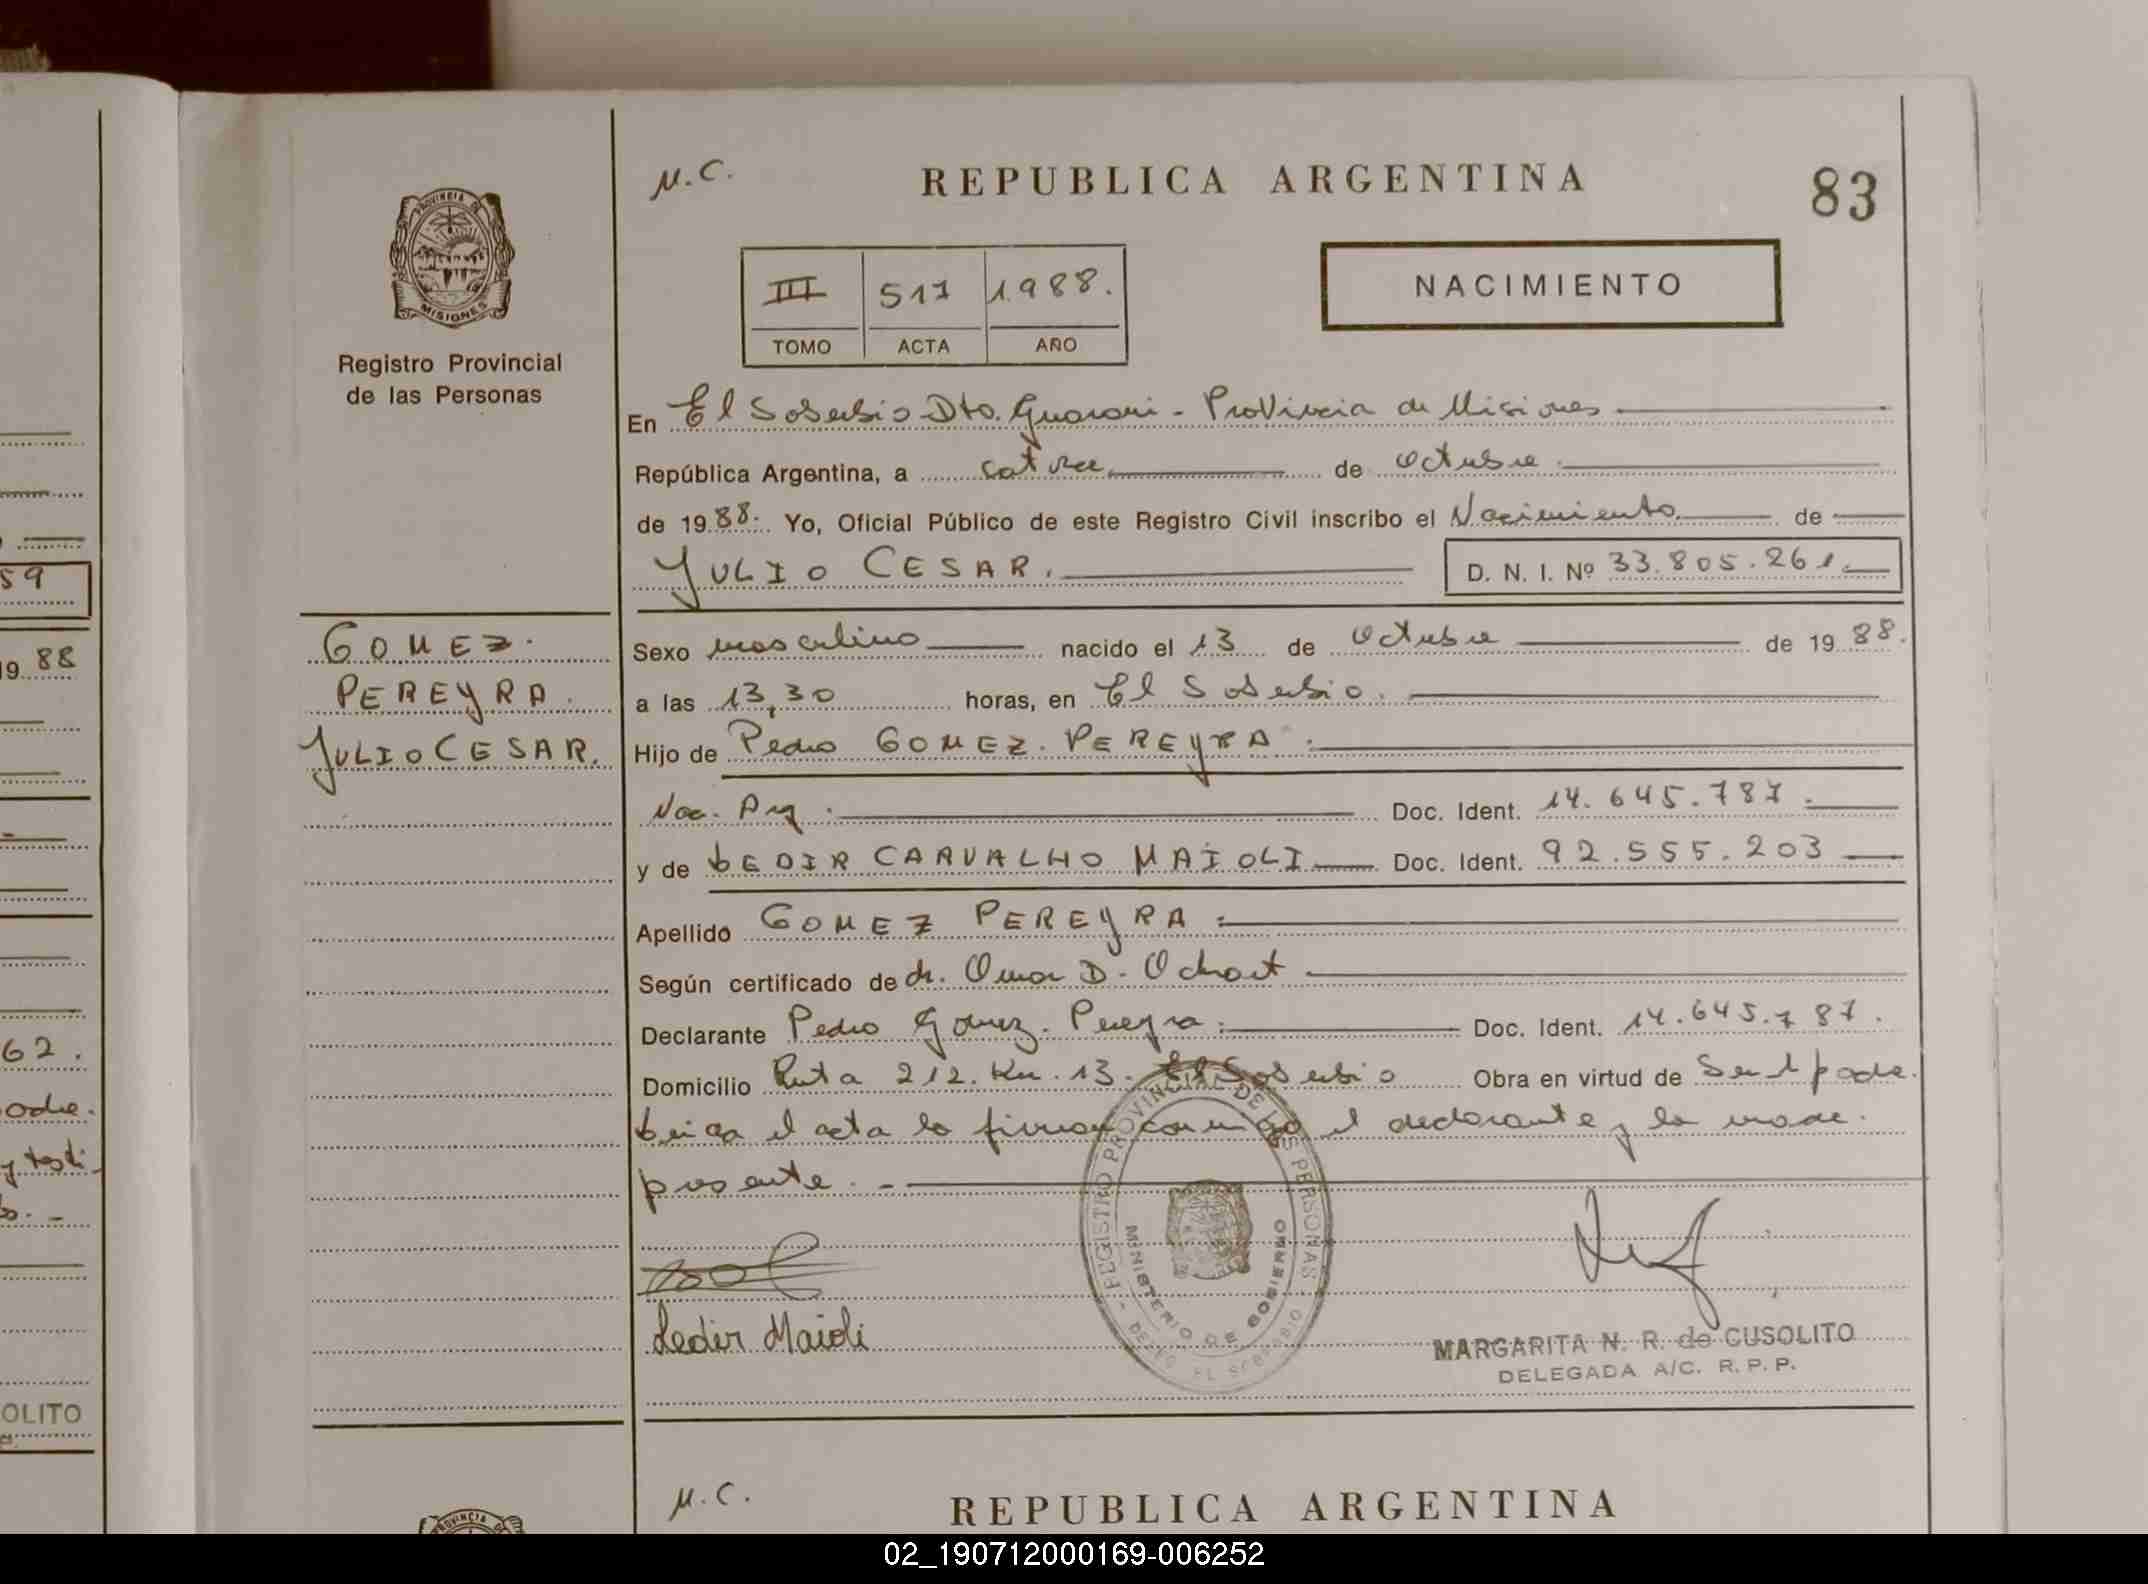 59
19 88
62.
odre.
y testi
OLITO
PROVINCIA DE
MISIONES
Registro Provincial
de las Personas
GOMEZ.
PEREYRA.
JULIO CESAR.
M.C. REPUBLICA ARGENTINA 83
III 517 1.988.
TOMO ACTA AÑO
NACIMIENTO
En El Soberbio Dto. Guarani - Provincia de Misiones
República Argentina, a catorce de Octubre
de 1988. Yo, Oficial Público de este Registro Civil inscribo el Nacimiento de
JULIO CESAR. D. N. I. Nº 33.805.261.
Sexo masculino nacido el 13 de Octubre de 1988.
a las 13,30 horas, en El Soberbio.
Hijo de Pedro GOMEZ. PEREYRA.
Nac. Arg. Doc. Ident. 14.645.787.
y de LEDIR CARVALHO MAIOLI Doc. Ident. 92.555.203
Apellido GOMEZ PEREYRA.
Según certificado de dr. Omar D.
Declarante Pedro Gomez. Pereyra. Doc. Ident. 14.645.787.
Domicilio Ruta 212. Km. 13. El Soberbio Obra en virtud de Ser el padre.
el acta la firman conmigo el declarante y la madre.
presente. -
REGISTRO PROVINCIAL DE LAS PERSONAS
MINISTERIO DE GOBIERNO
EL SOBERBIO
Ledir Maioli
MARGARITA N. R. de CUSOLITO
DELEGADA A/C. R. P. P.
M.C. REPUBLICA ARGENTINA
PROVINCIA DE
02_190712000169-006252